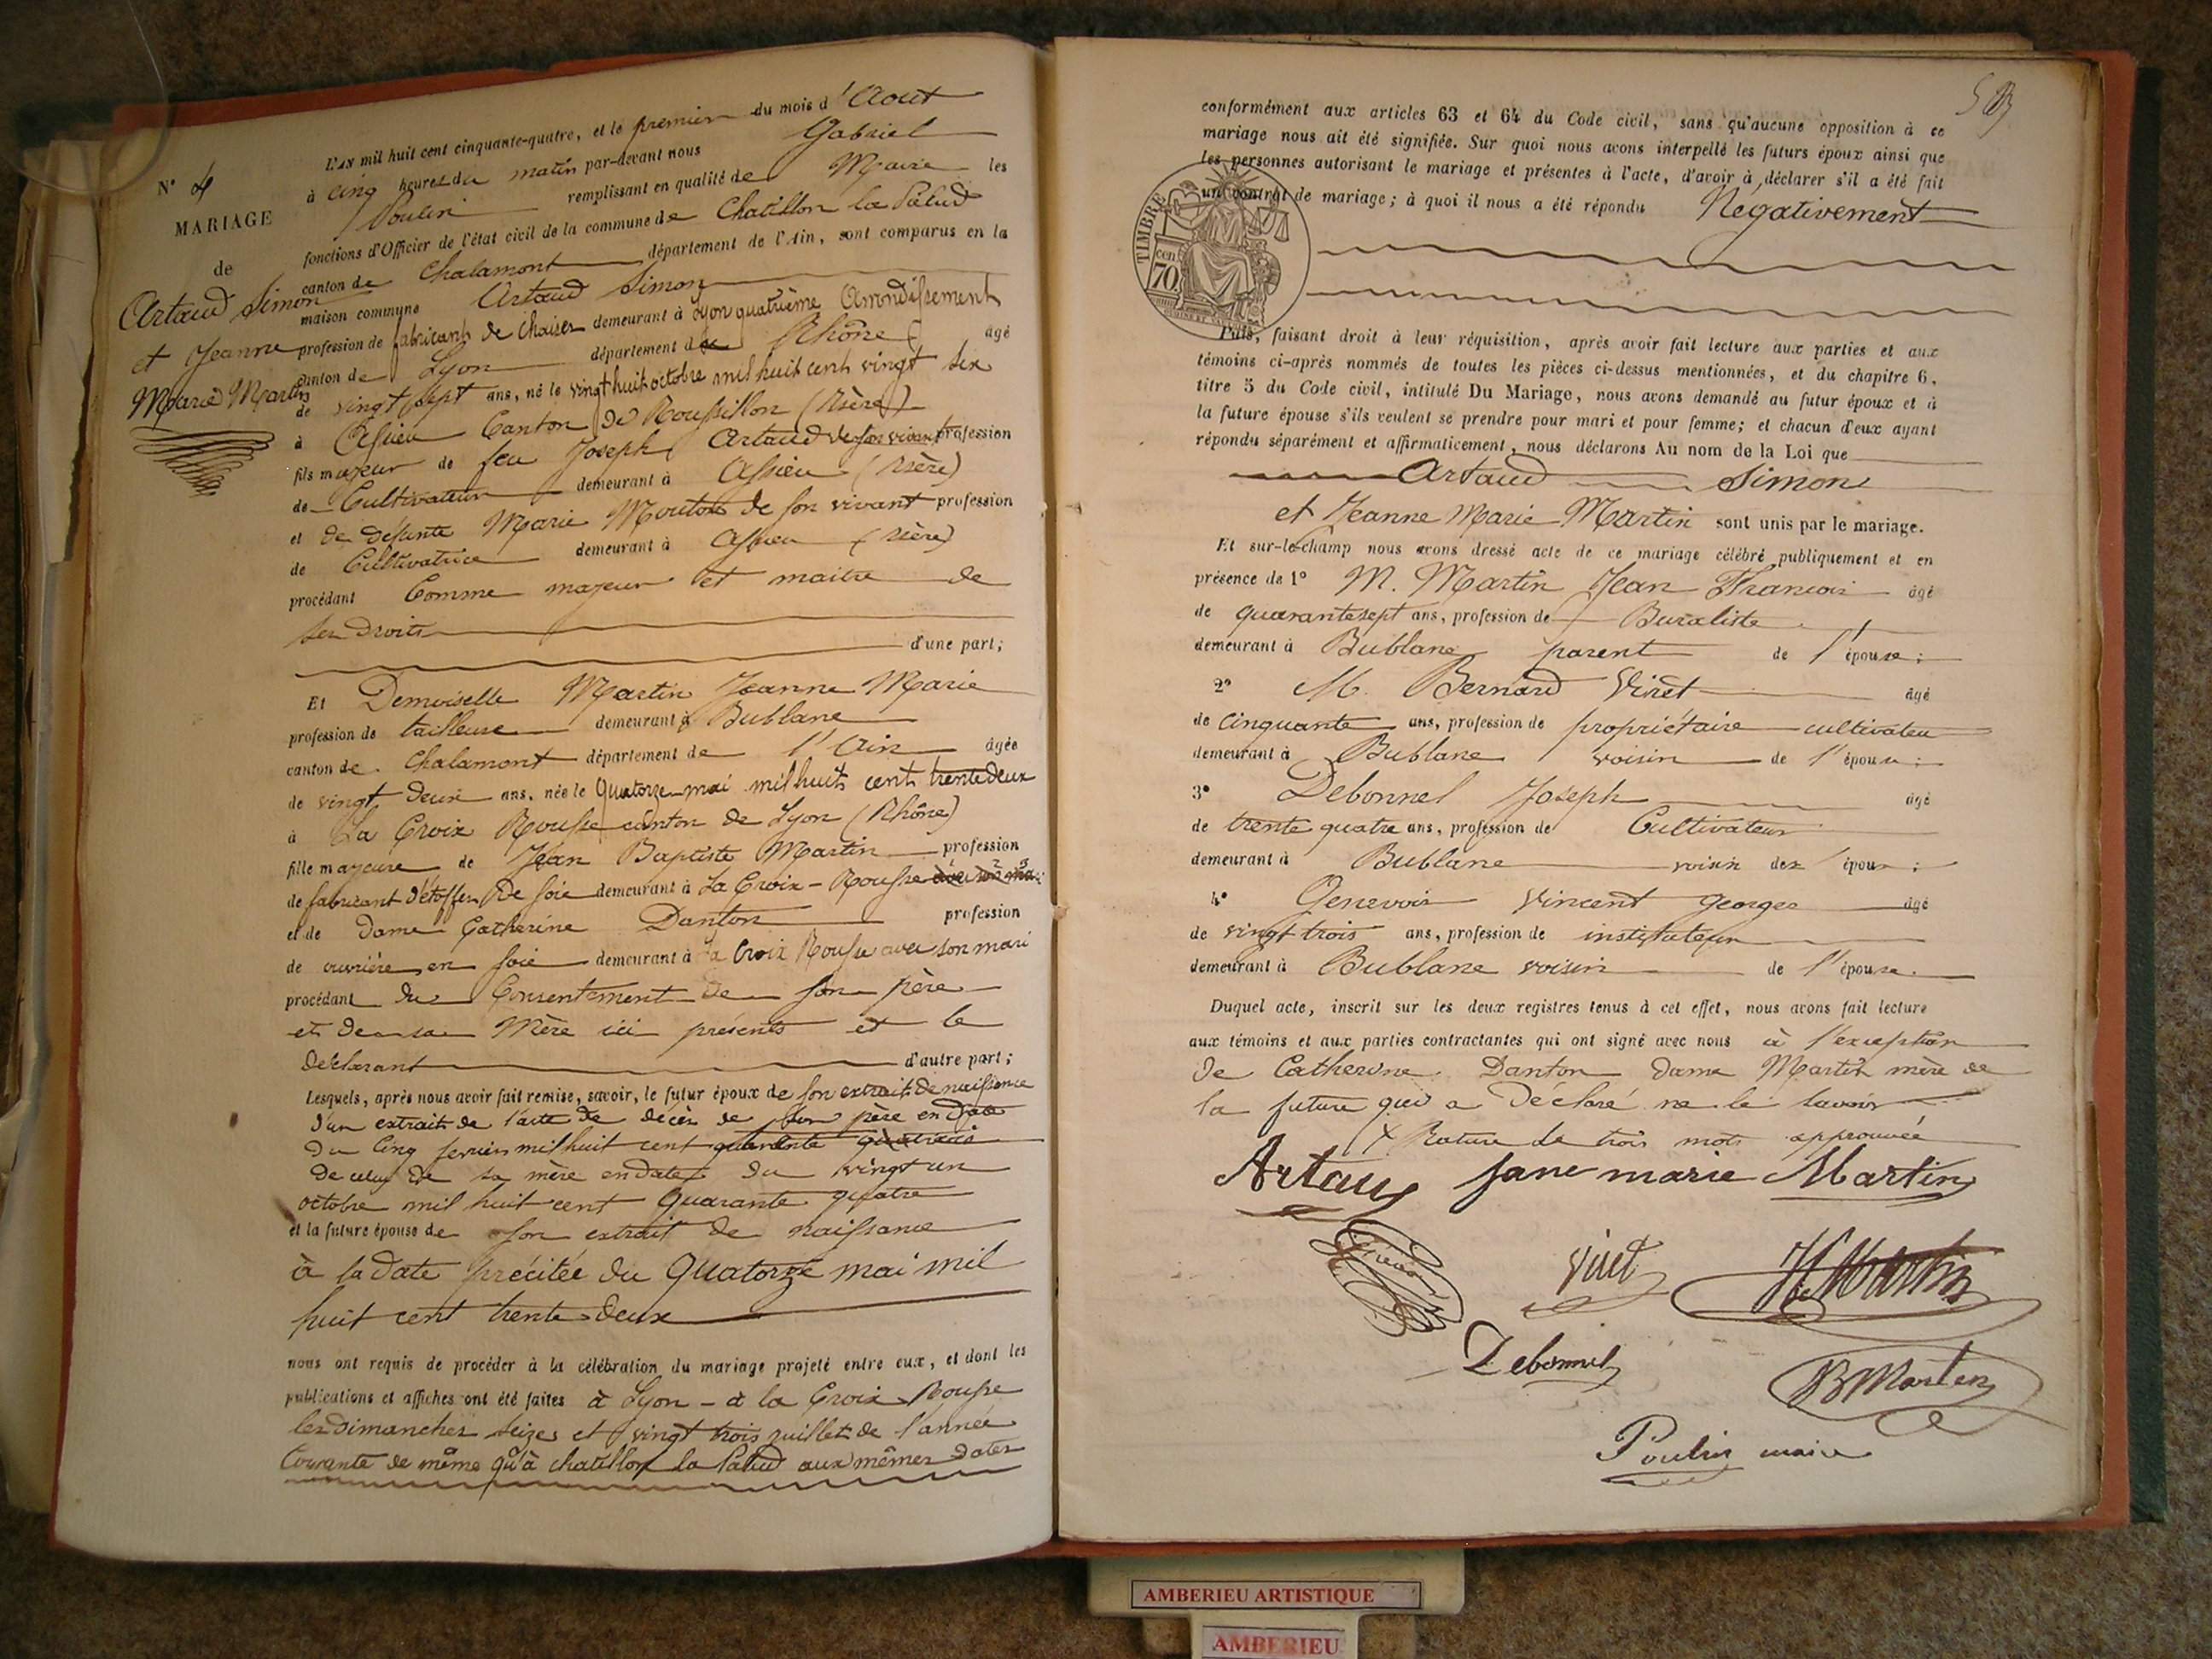 N° 4
MARIAGE
de
Artaud Simon
et Jeanne
Marie Martin
L'AN mil huit cent cinquante-quatre, et le premier du mois d'Aout
à cinq heures du matin par-devant nous Gabriel
Poulin remplissant en qualité de Maire les
fonctions d'Officier de l'état civil de la commune de Chatillon la Palud
canton de Chalamont département de l'Ain, sont comparus en la
maison commune Artaud Simon
profession de fabricant de chaises demeurant à Lyon quatrième Arrondissement
canton de Lyon département de Rhône âgé
de vingt sept ans, né le vingt huit octobre mil huit cent vingt six
à Assieu Canton de Roussillon (Isère)
fils majeur de feu Joseph Artaud de son vivant profession
de Cultivateur demeurant à Assieu (Isère)
et de défunte Marie Mouton de son vivant profession
de Cultivatrice demeurant à Assieu (Isère)
procédant Comme majeur et maitre de
ses droits
d'une part;
Et Demoiselle Martin Jeanne Marie
profession de tailleuse demeurant à Bublane
canton de Chalamont département de l'Ain âgée
de vingt deux ans, née le Quatorze mai mil huit cent trente deux
à La Croix Rousse canton de Lyon (Rhône)
fille majeure de Jean Baptiste Martin profession
de fabricant d'étoffes de soie demeurant à La Croix-Rousse
et de dame Catherine Danton profession
de ouvrière en soie demeurant à la Croix Rousse avec son mari
procédant du Consentement de son père
et de sa Mère ici présents et le
déclarant d'autre part;
Lesquels, après nous avoir fait remise, savoir, le futur époux de son extrait de naissance
d'un extrait de l'acte de décès de son père en date
du Cinq fevrier mil huit cent quarante
de celui de sa mère en date du vingt un
octobre mil huit cent Quarante quatre
et la future épouse de son extrait de naissance
à la date précitée du Quatorze mai mil
huit cent trente deux
nous ont requis de procéder à la célébration du mariage projeté entre eux, et dont les
publications et affiches ont été faites à Lyon - à la Croix Rousse
les dimanches seize et vingt trois juillet de l'année
Courante de même qu'à chatillon la Palud aux mêmes dates
conformément aux articles 63 et 64 du Code civil, sans qu'aucune opposition à ce
mariage nous ait été signifiée. Sur quoi nous avons interpellé les futurs époux ainsi que
les personnes autorisant le mariage et présentes à l'acte, d'avoir à déclarer s'il a été fait
un contrat de mariage; à quoi il nous a été répondu Négativement
TIMBRE
cen.
70
Puis, faisant droit à leur réquisition, après avoir fait lecture aux parties et aux
témoins ci-après nommés de toutes les pièces ci-dessus mentionnées, et du chapitre 6,
titre 5 du Code civil, intitulé Du Mariage, nous avons demandé au futur époux et à
la future épouse s'ils veulent se prendre pour mari et pour femme; et chacun d'eux ayant
répondu séparément et affirmativement, nous déclarons Au nom de la Loi que
Artaud Simon
et Jeanne Marie Martin sont unis par le mariage.
Et sur-le-champ nous avons dressé acte de ce mariage célébré publiquement et en
présence de 1° M. Martin Jean François âgé
de quarante sept ans, profession de Buraliste
demeurant à Bublane parent de l'épouse;
2° M. Bernard Viret âgé
de cinquante ans, profession de propriétaire cultivateu
demeurant à Bublane voisin de l'épouse;
3° Debonnel Joseph âgé
de trente quatre ans, profession de Cultivateur
demeurant à Bublane voisin de l'épouse;
4° Genevois Vincent Georges âgé
de vingt trois ans, profession de instituteur
demeurant à Bublane voisin de l'épouse.
Duquel acte, inscrit sur les deux registres tenus à cet effet, nous avons fait lecture
aux témoins et aux parties contractantes qui ont signé avec nous à l'exception
de Catherine Danton dame Martin mère de
la future qui a déclaré ne le savoir
X Rature de trois mots approuvée
Artaud jane marie Martin
Viret Martin
Debonnel B Martin
Poulin maire
AMBERIEU ARTISTIQUE
AMBERIEU